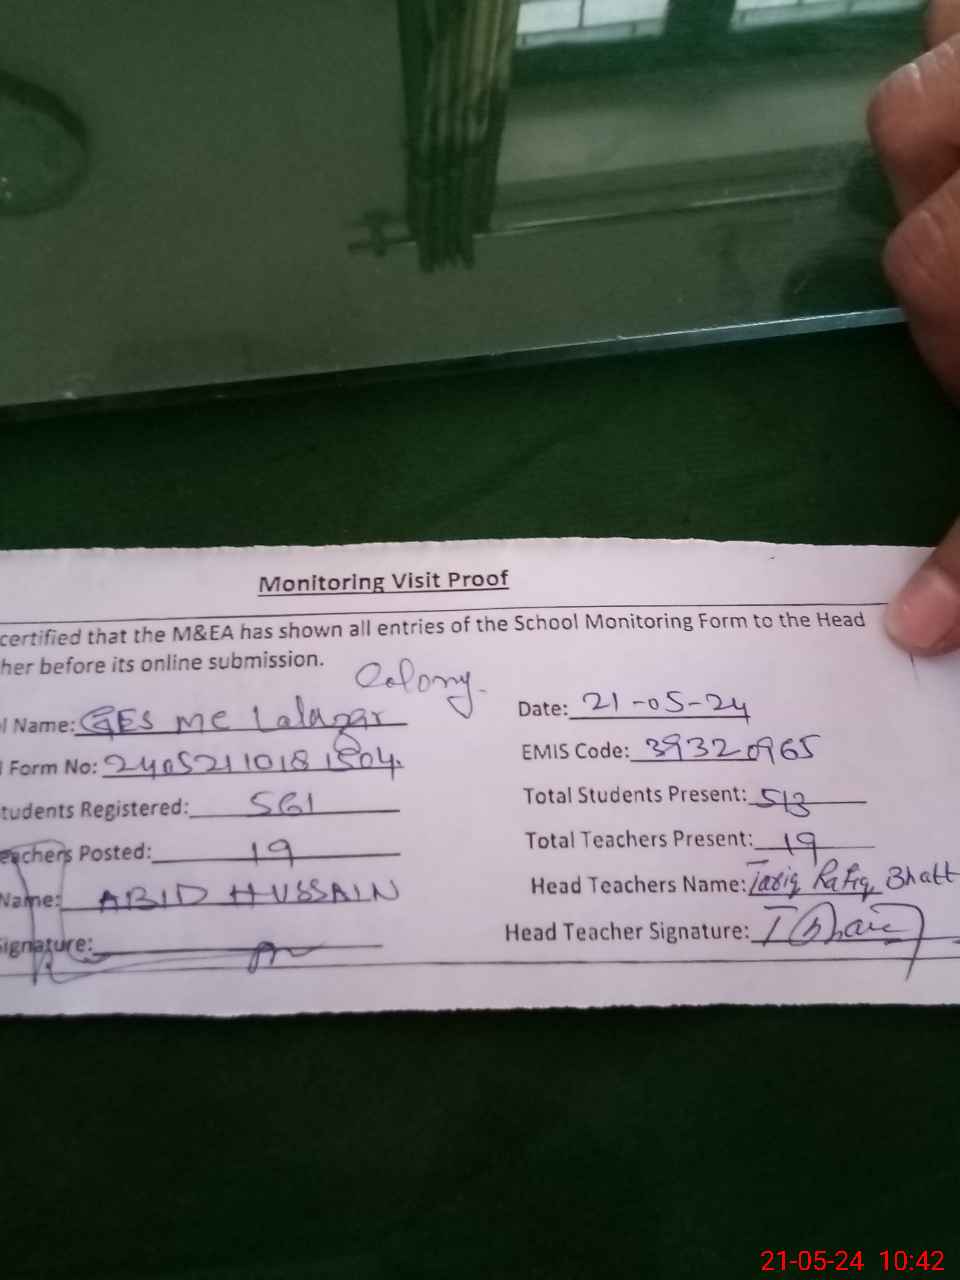 Monitoring Visit Proof
certified that the M&EA has shown all entries of the School Monitoring Form to the Head
her before its online submission.
Colony.
l Name: GES MC Lalazar Date: 21-05-24
Form No: 2405211018 1504. EMIS Code: 39320965
tudents Registered: 561 Total Students Present: 513
eachers Posted: 19 Total Teachers Present: 19
Name: ABID HUSSAIN Head Teachers Name: Tariq Rafiq Bhatt
Signature: Head Teacher Signature:
21-05-24 10:42